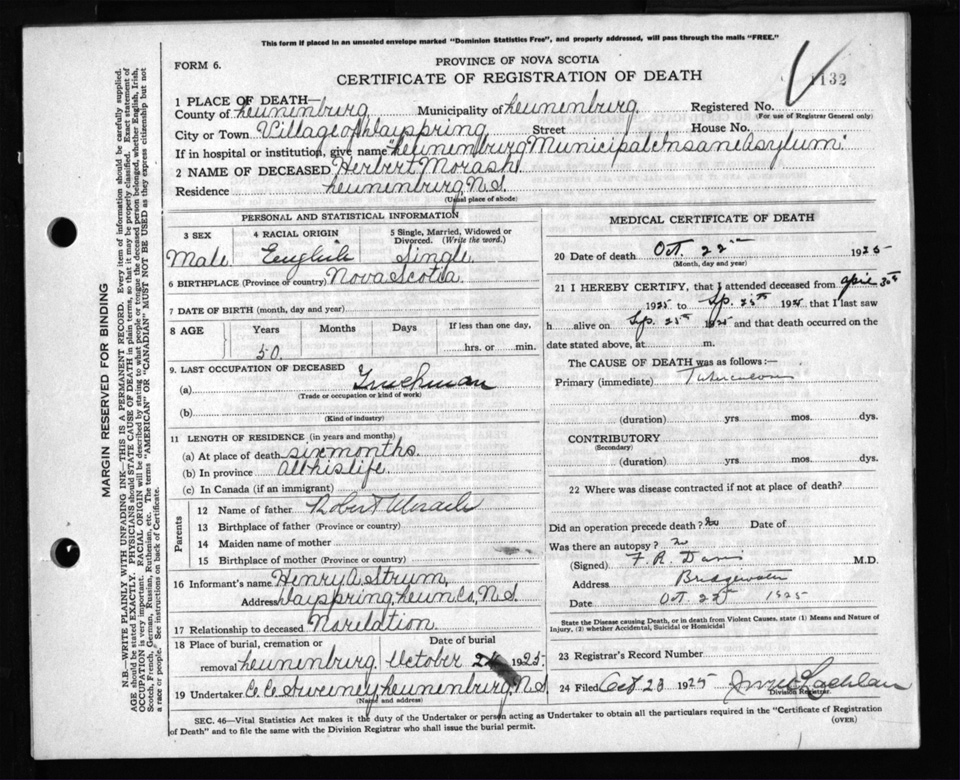 This form if placed in an unsealed envelope marked "Dominion Statistics Free", and properly addressed, will pass through the mails "FREE."
FORM 6.
PROVINCE OF NOVA SCOTIA
CERTIFICATE OF REGISTRATION OF DEATH
1132
1 PLACE OF DEATH—
County of Lunenburg Municipality of Lunenburg Registered No.
(For use of Registrar General only)
City or Town Village of Dayspring Street House No.
If in hospital or institution, give name Lunenburg Municipal Insane Asylum
2 NAME OF DECEASED Herbert Morash
Residence Lunenburg N.S.
(Usual place of abode)
PERSONAL AND STATISTICAL INFORMATION
3 SEX
Male
4 RACIAL ORIGIN
English
5 Single, Married, Widowed or Divorced. (Write the word.)
Single
6 BIRTHPLACE (Province or country) Nova Scotia
7 DATE OF BIRTH (month, day and year)
8 AGE Years Months Days If less than one day,
50. hrs. or min.
9. LAST OCCUPATION OF DECEASED
(a) Truckman
(Trade or occupation or kind of work)
(b)
(Kind of industry)
11 LENGTH OF RESIDENCE (in years and months)
(a) At place of death six months.
(b) In province All his life.
(c) In Canada (if an immigrant)
Parents
12 Name of father Robert Morash
13 Birthplace of father (Province or country)
14 Maiden name of mother
15 Birthplace of mother (Province or country)
16 Informant's name Henry A Strum,
Address Dayspring, Lun Co, N.S.
17 Relationship to deceased No relation
18 Place of burial, cremation or Date of burial
removal Lunenburg. October 1925.
19 Undertaker C. E. Sweeney Lunenburg, N.S
(Name and address)
MEDICAL CERTIFICATE OF DEATH
20 Date of death Oct. 22nd 1925
(Month, day and year)
21 I HEREBY CERTIFY, that I attended deceased from Apric 30th
1925 to Sp. 25th 1925 that I last saw
h alive on Sp. 25th 1925 and that death occurred on the
date stated above, at m.
The CAUSE OF DEATH was as follows:—
Primary (immediate) Tuberculosis
(duration) yrs. mos. dys.
CONTRIBUTORY
(Secondary)
(duration) yrs. mos. dys.
22 Where was disease contracted if not at place of death?
Did an operation precede death? no Date of
Was there an autopsy? no
(Signed) F. R. Davis M.D.
Address Bridgewater
Date Oct. 22 1925
State the Disease causing Death, or in death from Violent Causes, state (1) Means and Nature of Injury, (2) whether Accidental, Suicidal or Homicidal
23 Registrar's Record Number
24 Filed Oct 23 1925 McLachlan
Division Registrar.
SEC. 46—Vital Statistics Act makes it the duty of the Undertaker or person acting as Undertaker to obtain all the particulars required in the "Certificate of Registration of Death" and to file the same with the Division Registrar who shall issue the burial permit.
(OVER)
MARGIN RESERVED FOR BINDING
N.B.—WRITE PLAINLY WITH UNFADING INK—THIS IS A PERMANENT RECORD. Every item of information should be carefully supplied.
AGE should be stated EXACTLY. PHYSICIANS should STATE CAUSE OF DEATH in plain terms, so that it may be properly classified. Exact statement of
OCCUPATION is very important. RACIAL ORIGIN will be described by stating to what people or tongue the deceased person belonged, whether English, Irish,
Scotch, French, German, Russian, Ruthenian, etc. The terms "AMERICAN" OR "CANADIAN" MUST NOT BE USED as they express citizenship but not
a race or people. See instructions on back of Certificate.